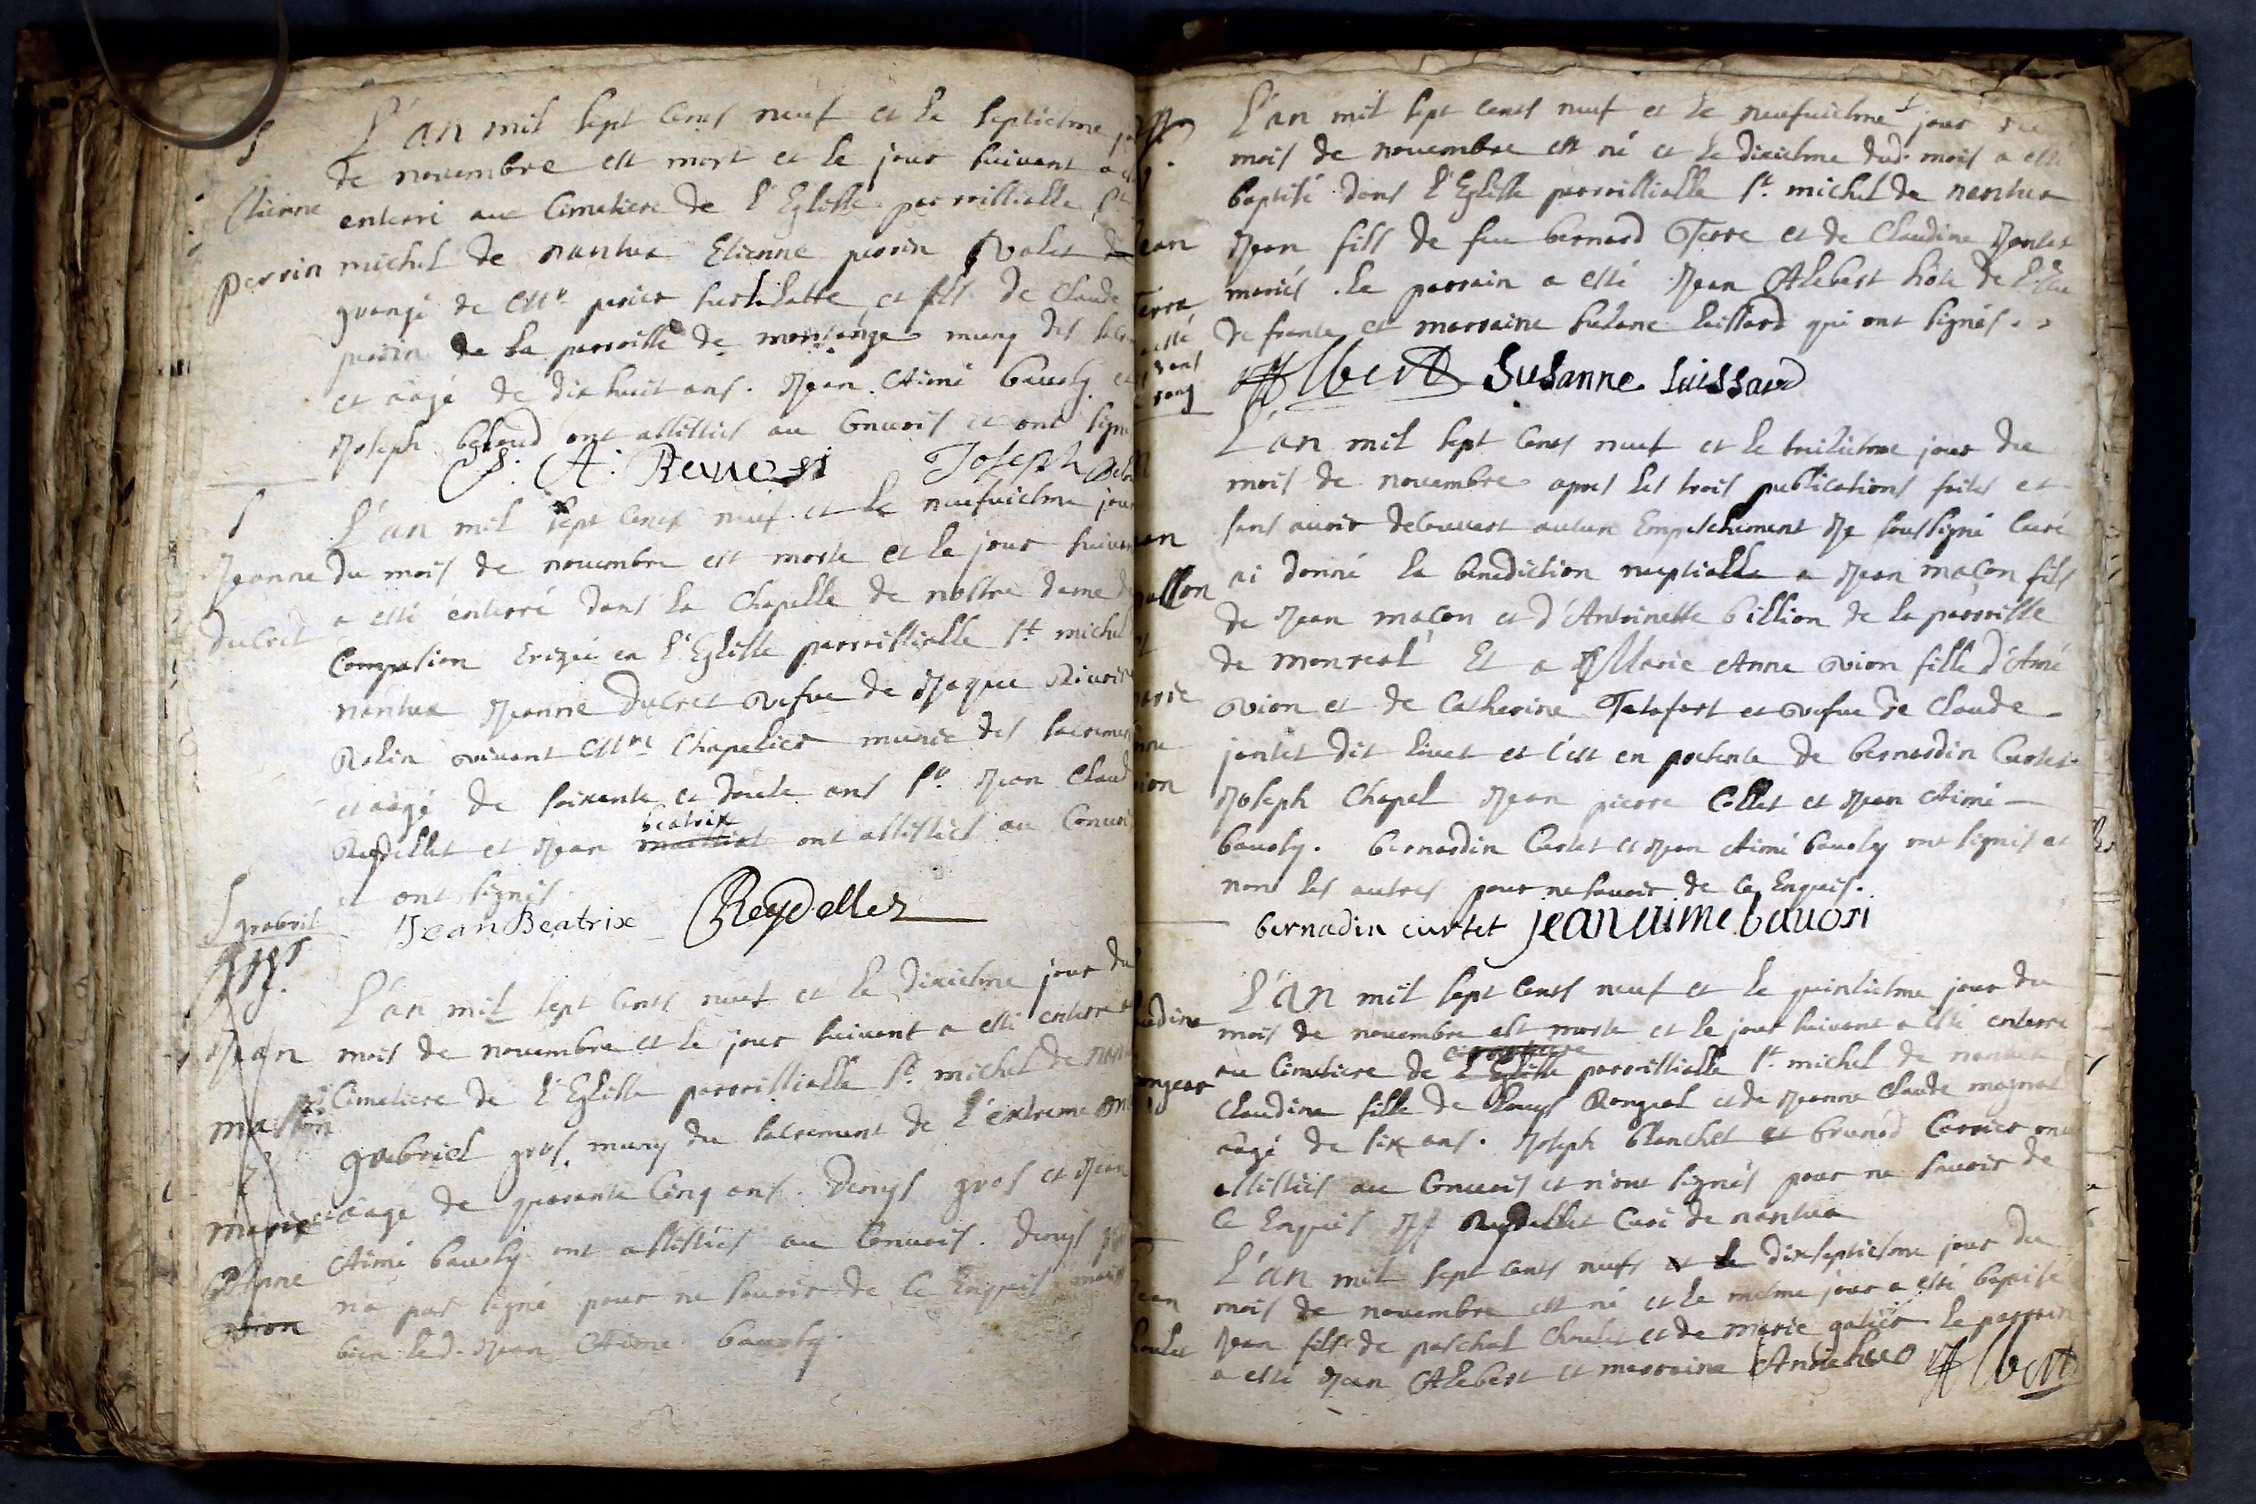 L'an mil sept cents neuf et le septiesme
de novembre est mort et le jour suivant a
enterré au Cimetiere de l'Eglisse parroissialle St
Etienne
perrin
michel de nantua Etienne perrin valet de
grangé de Mr perier sur le latte et fils de Claude
perrin de la parroisse de montange muny des
et aagé de dix huit ans. Jean Aimé bavoly et
Joseph beloud ont assistés au Convois et ont signé
J. A. Bevuosi Joseph
L'an mil sept cents neuf et le neufviesme jour
Jeanne
ducret
du mois de novembre est morte et le jour suivant
a esté enterré dans la Chapelle de nostre dame de
Compasion Erigée en l'Eglisse parroissialle St michel
nantua Jeanne Ducret vefue de Jaque
Rolin vivant Me Chapelier munie des sacrements
et aagé de soixante et douze ans Sr Jean Claude
beatrix
Reydellet et Jean ont assistés au Convois
et ont signés.
Jean Beatrix Reydellet
gabriel
gros
L'an mil sept cents neuf et le dixiesme jour du
mois de novembre et le jour suivant a esté enterré
Cimetiere de l'Eglisse parroissialle St michel de nantua
gabriel gros muny du sacrement de l'extreme
aagé de quarante Cinq ans. Denys gros et Jean
Aimé bavoly ont assistés au Convois. Denys gros
n'a pas signé pour ne savoir de ce Enquis mais
bien led. Jean Aimé bavoly.
Jean
marie
Anne
vion
L'an mil sept cents neuf et le neufviesme jour du
mois de novembre est né et le dixiesme dud. mois a esté
baptisé dans l'Eglisse parroissialle St. michel de nantua
Jean fils de feu bernard Terre et de Claudine Jantet
mariés. le parrain a esté Jean Alebert hôte de l'Escu
de france et marraine Susane luissard qui ont signés.
Albert Susanne Luissard
L'an mil sept cents neuf et le treisiesme jour du
mois de novembre apres les trois publications faites et
sans avoir decouvert aucun Empeschement Je soussigné Curé
ai donné la benediction nuptialle a Jean maçon fils
de Jean maçon et d'Antoinette billion de la parroisse
de monreal Et a Marie Anne vion fille d'Amé
vion et de Catherine Tatafort et vefue de Claude
jantet dit livet et c'est en presence de bernardin Curtet
Joseph Chapel Jean pierre Collet et Jean Aimé
bavoly. bernardin Curtet et Jean Aimé bavoly ont signés et
non les autres pour ne savoir de ce Enquis.
bernadin curtet jean aime bavosi
L'an mil sept cents neuf et le quinsiesme jour du
mois de novembre est morte et le jour suivant a esté enterré
au Cimetiere de l'Eglisse parroissialle St. michel de nantua
Claudine fille de Louys Rongeat et de Jeanne Claude
aagé de six ans. Joseph blanchet et brunod Carrier ont
assistés au Convois et n'ont signés pour ne savoir de
ce Enquis Reydellet Curé de nantua
L'an mil sept cents neufs et le dixseptiesme jour du
mois de novembre est né et le mesme jour a esté baptisé
Jean fils de paschal Choulet et de marie le parrain
a esté Jean Alebert et marraine Anne Albert